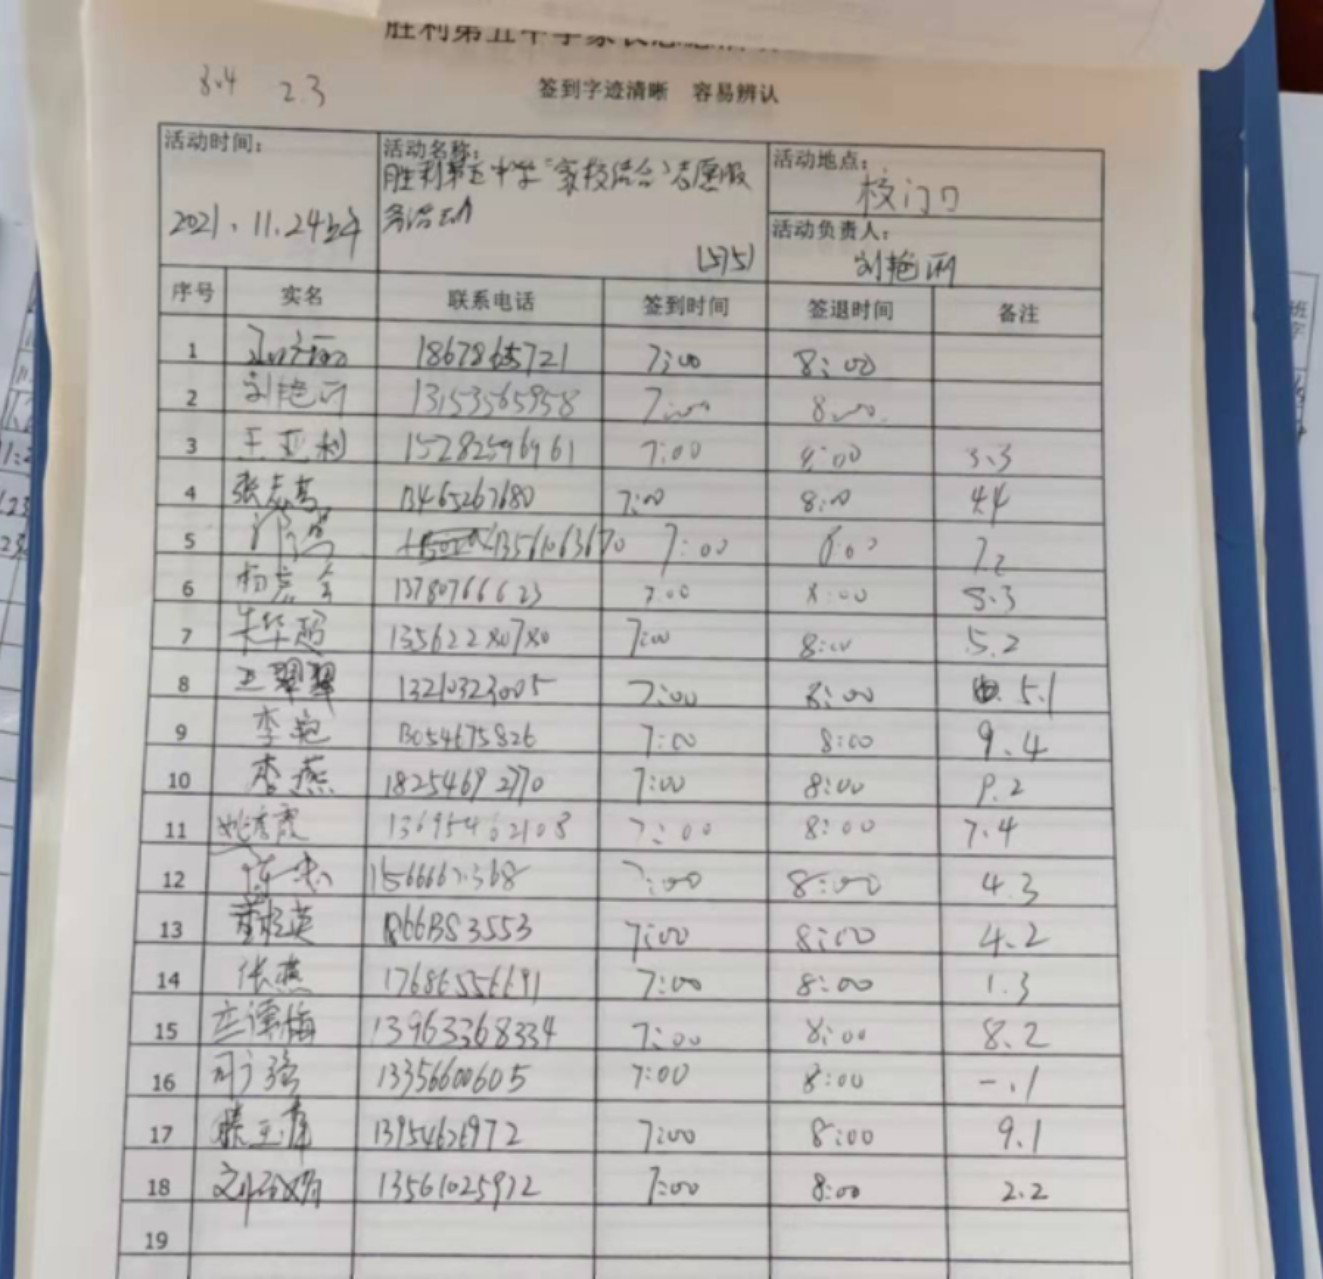 8.4 2.3
签到字迹清晰 容易辨认
活动时间：
2021.11.24
活动名称：
胜利第五中学"家校结合"志愿服
务活动
活动地点：
校门口
活动负责人：
刘艳丽
序号 实名 联系电话 签到时间 签退时间 备注
1 7:00 8:00
2 刘艳丽 13153565958 7:00 8:00
3 王亚利 15282596961 7:00 8:00 3.3
4 张志芳 13465267680 7:00 8:00 4.4
5 13561063670 7:00 8:00 7.2
6 13780766623 7:00 8:00
7 13562280780 7:00 8:00 5.2
8 王翠翠 13210323005 7:00 8:00 5.1
9 李艳 13054675826 7:00 8:00 9.4
10 李燕 18254692770 7:00 8:00 9.2
11 13695462108 7:00 8:00 7.4
12 7:00 8:00 4.3
13 7:00 8:00 4.2
14 张燕 17686556691 7:00 8:00 1.3
15 13963368334 7:00 8:00 8.2
16 13356600605 7:00 8:00
17 13954626972 7:00 8:00 9.1
18 13561025912 7:00 8:00 2.2
19